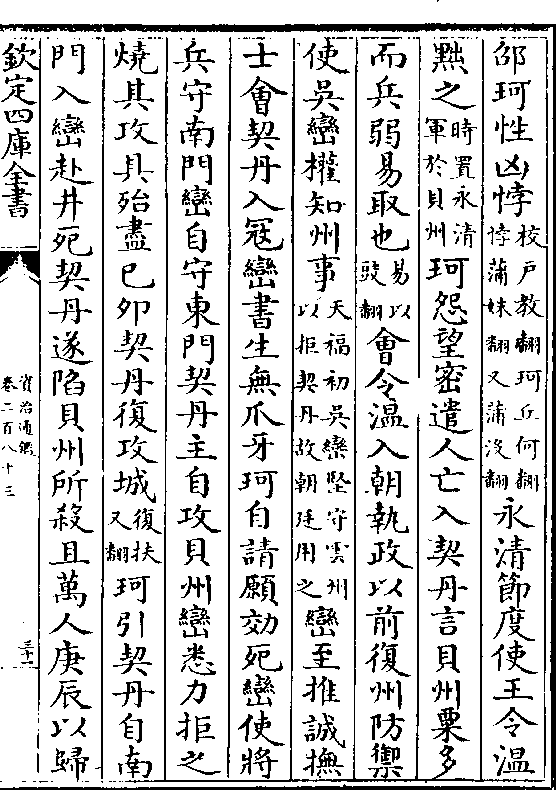 邵珂性凶悖校戶教翻珂丘何翻悖蒲妹翻又蒲沒翻永清節度使王令溫
黜之時置永清軍於貝州珂怨望密遣人亡入契丹言貝州粟多
而兵弱易取也易以豉翻會令溫入朝執政以前復州防禦
使吳巒權知州事天福初吳巒堅守雲州以拒契丹故朝廷用之巒至推誠撫
士會契丹入冦巒書生無爪牙珂自請願効死巒使將
兵守南門巒自守東門契丹主自攻貝州巒悉力拒之
燒其攻具殆盡已卯契丹復攻城復扶又翻珂引契丹自南
門入巒赴井死契丹遂陷貝州所殺且萬人庚辰以歸
欽定四庫全書
資治通鑑
卷二百八十三